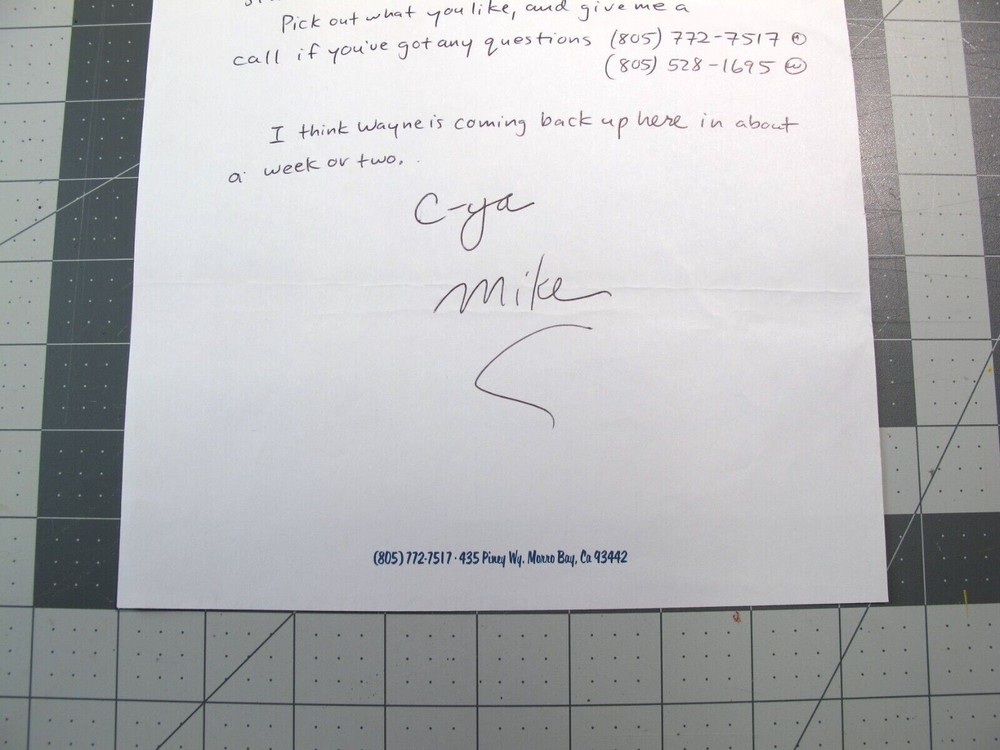 Pick out what you like, and give me a
call if you've got any questions (805) 772-7517 Ⓗ
(805) 528-1695 Ⓦ
I think Wayne is coming back up here in about
a week or two.
C-ya
Mike
(805) 772-7517 · 435 Piney Wy. Morro Bay, Ca 93442